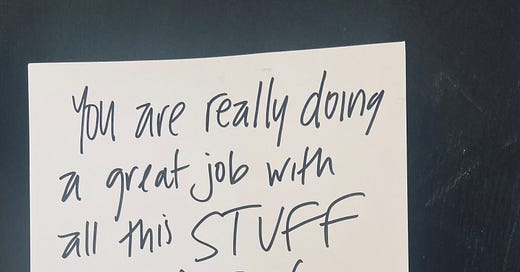 You are really doing
a great job with
all this STUFF